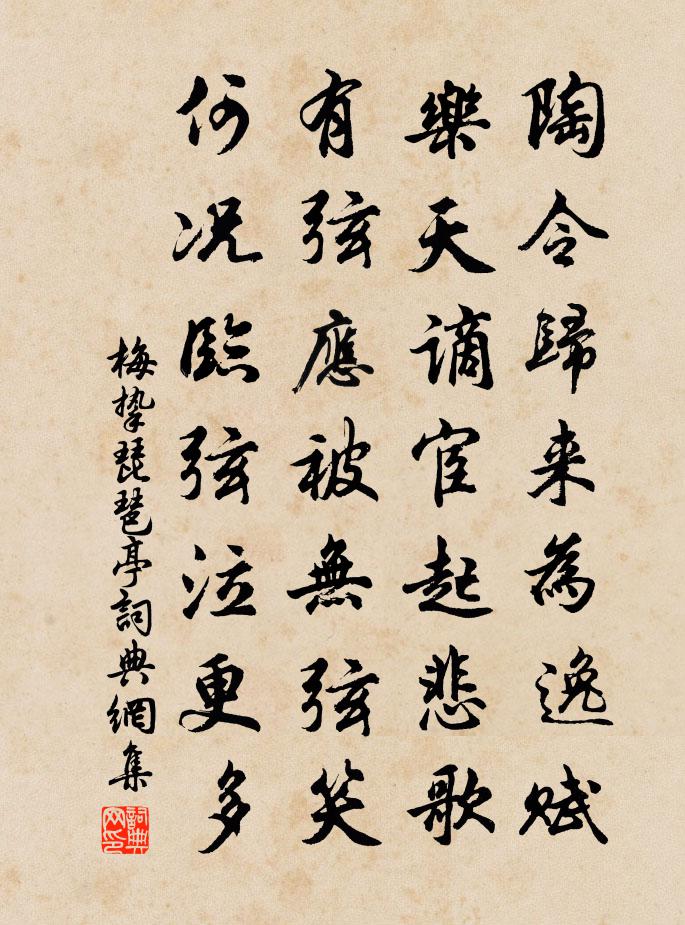 陶令歸来為逸賦
樂天謫宦起悲歌
有弦應被無弦笑
何况臨弦泣更多
梅挚琵琶亭詞典網集
詞典网印